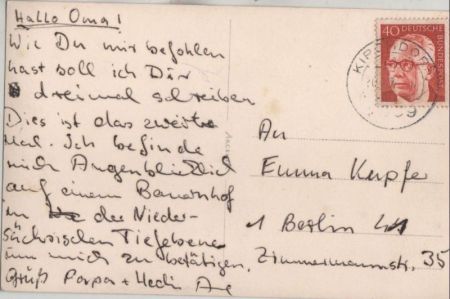 Hallo Oma!
Wie Du mir befohlen
hast soll ich Dir
dreimal schreiben
Dies ist das zweite
Mal. Ich befinde
mich Augenblicklich
auf einem Bauernhof
in der Nieder-
sächsischen Tiefebene
um mich zu betätigen.
Gruß Papa +
40 DEUTSCHE
BUNDESPOST
An
Emma Kupfer
1 Berlin 41
Zimmermannstr. 35